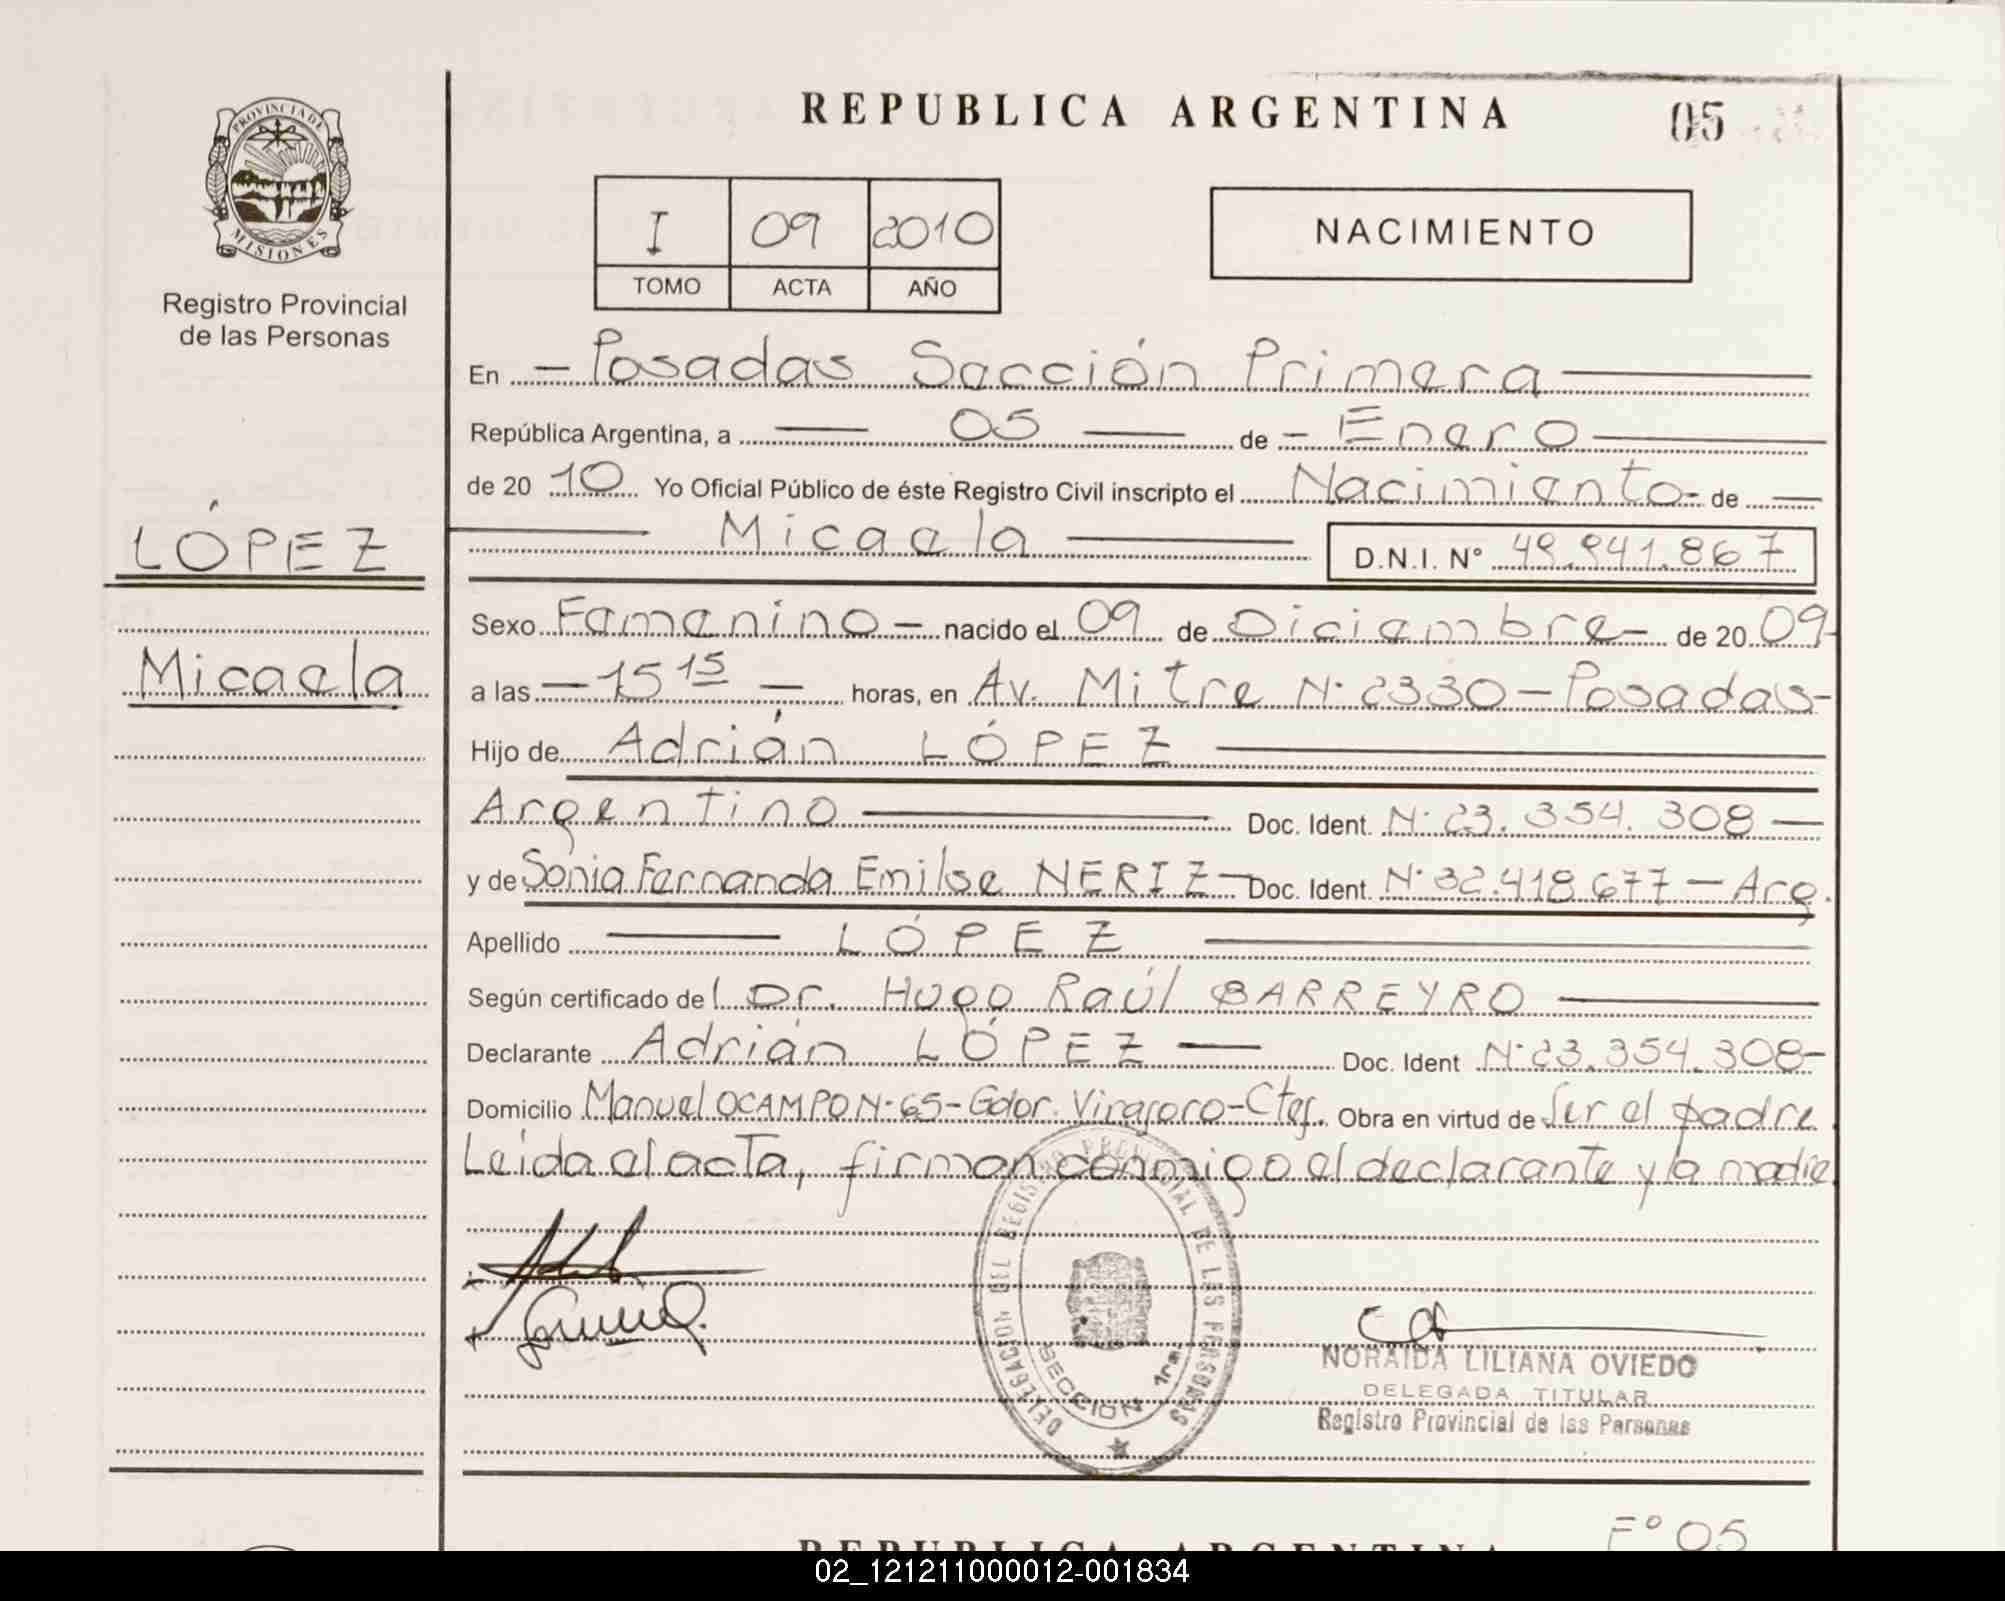 REPUBLICA ARGENTINA
05
PROVINCIA DE
MISIONES
Registro Provincial
de las Personas
I 09 2010
TOMO ACTA AÑO
NACIMIENTO
En - Posadas Sección Primera
República Argentina, a 05 de - Enero
de 20 10 Yo Oficial Público de éste Registro Civil inscripto el Nacimiento - de
LÓPEZ
Micaela
Micaela D.N.I. N° 49.941.867
Sexo Femenino - nacido el 09 de Diciembre - de 20 09 -
a las - 15 15 - horas, en Av. Mitre N° 2330 - Posadas -
Hijo de Adrián LÓPEZ
Argentino Doc. Ident. N° 23.354.308 -
y de Sonia Fernanda Emilse NERIZ - Doc. Ident. N° 32.418.677 - Arg.
Apellido LÓPEZ
Según certificado del Dr. Hugo Raúl BARREYRO
Declarante Adrián LÓPEZ - Doc. Ident N° 23.354.308 -
Domicilio Manuel OCAMPO N° 65 - Gdor. Virasoro - Ctes. Obra en virtud de Ser el padre.
Leída el acta, firman conmigo el declarante y la madre.
DELEGACION DEL REGISTRO PROVINCIAL DE LAS PERSONAS
SECCION 1ra
NORAIDA LILIANA OVIEDO
DELEGADA TITULAR
Registro Provincial de las Personas
F° 05
REPUBLICA ARGENTINA
02_121211000012-001834